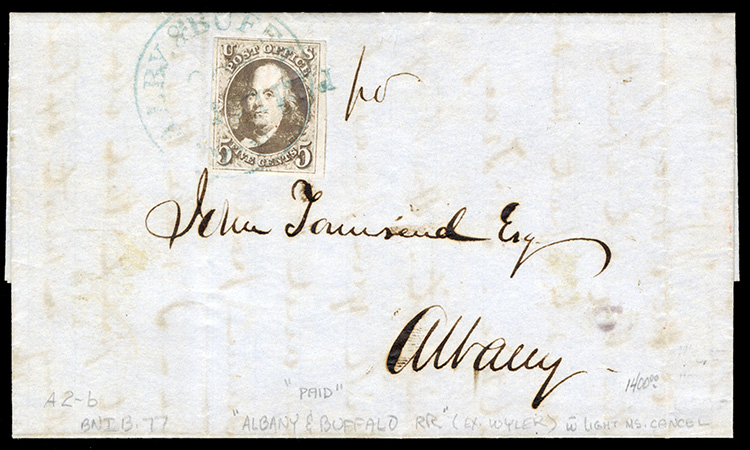 ALBY. & BUFF
U S
POST OFFICE
5 FIVE CENTS 5
pd
John Townsend Esq
Albany
1400.00
"PAID"
A2-b
"ALBANY & BUFFALO RR" (EX. WYLER) w̄ LIGHT MS. CANCEL